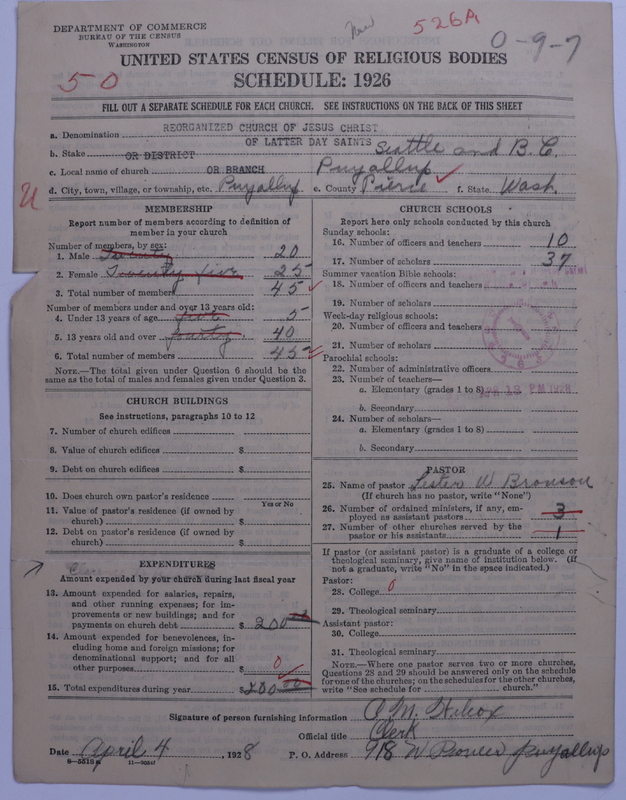 DEPARTMENT OF COMMERCE
BUREAU OF THE CENSUS
WASHINGTON
New
526A
0-9-7
UNITED STATES CENSUS OF RELIGIOUS BODIES
50
SCHEDULE: 1926
FILL OUT A SEPARATE SCHEDULE FOR EACH CHURCH. SEE INSTRUCTIONS ON THE BACK OF THIS SHEET
a. Denomination REORGANIZED CHURCH OF JESUS CHRIST
OF LATTER DAY SAINTS
b. Stake OR DISTRICT Seattle and B. C.
c. Local name of church OR BRANCH Puyallup
U
d. City, town, village, or township, etc. Puyallup. e. County Pierce f. State Wash.
MEMBERSHIP
Report number of members according to definition of
member in your church
Number of members, by sex:
1. Male Twenty 20
2. Female Twenty five 25
3. Total number of members 45
Number of members under and over 13 years old:
4. Under 13 years of age five 5
5. 13 years old and over fourty 40
6. Total number of members 45
NOTE.—The total given under Question 6 should be
same as the total of males and females given under Question 3.
CHURCH BUILDINGS
See instructions, paragraphs 10 to 12
7. Number of church edifices
8. Value of church edifices $
9. Debt on church edifices $
10. Does church own pastor's residence
Yes or No
11. Value of pastor's residence (if owned by
church) $
12. Debt on pastor's residence (if owned by
church) $
EXPENDITURES
Amount expended by your church during last fiscal year
13. Amount expended for salaries, repairs,
and other running expenses; for im-
provements or new buildings; and for
payments on church debt $ 200 00
14. Amount expended for benevolences, in-
cluding home and foreign missions; for
denominational support; and for all
other purposes $ 0
15. Total expenditures during year $ 200 00
CHURCH SCHOOLS
Report here only schools conducted by this church
Sunday schools:
16. Number of officers and teachers 10
17. Number of scholars 37
Summer vacation Bible schools:
18. Number of officers and teachers
19. Number of scholars
Week-day religious schools:
20. Number of officers and teachers
21. Number of scholars
Parochial schools:
22. Number of administrative officers
23. Number of teachers—
a. Elementary (grades 1 to 8)
APR 13 PM 1928
b. Secondary
24. Number of scholars—
a. Elementary (grades 1 to 8)
b. Secondary
PASTOR
25. Name of pastor Lester W Bronson
(If church has no pastor, write "None")
26. Number of ordained ministers, if any, em-
ployed as assistant pastors 3
27. Number of other churches served by the
pastor or his assistants 1
If pastor (or assistant pastor) is a graduate of a college or
theological seminary, give name of institution below. (If
not a graduate, write "No" in the space indicated.)
Pastor:
28. College 0
29. Theological seminary
Assistant pastor:
30. College
31. Theological seminary
NOTE.—Where one pastor serves two or more churches,
Questions 28 and 29 should be answered only on the schedule
for one of the churches; on the schedules for the other churches,
write "See schedule for church."
Signature of person furnishing information C M. Wilcox
Official title Clerk
Date April 4, 1928 P. O. Address 918 W Pioneer Puyallup